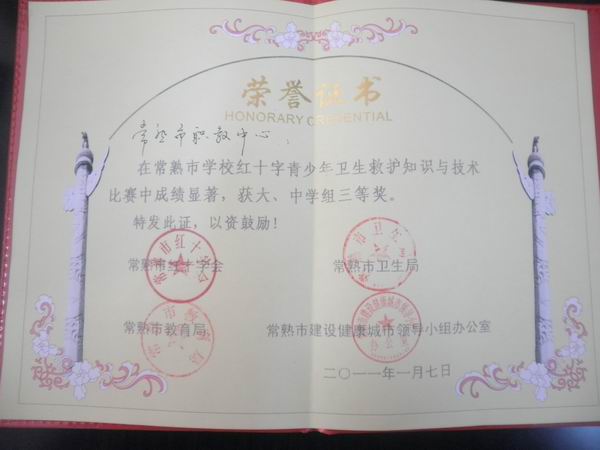 荣誉证书
HONORARY CREDENTIAL
常熟市职教中心：
在常熟市学校红十字青少年卫生救护知识与技术
比赛中成绩显著，获大、中学组三等奖。
特发此证，以资鼓励！
常熟市红十字会 常熟市卫生局
常熟市教育局 常熟市建设健康城市领导小组办公室
二〇一一年一月七日